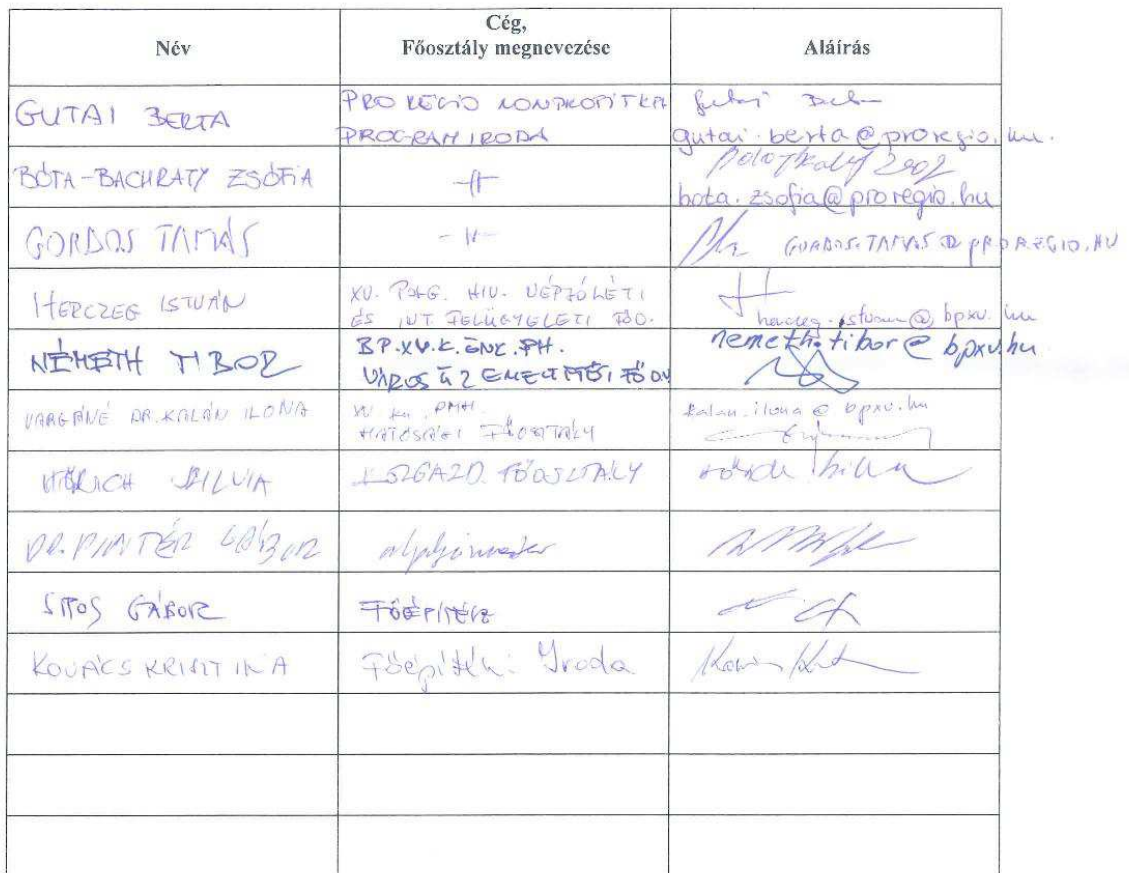 Név
Cég,
Főosztály megnevezése
Aláírás
GUTAI BERTA
PRO RÉGIÓ NONPROFIT KFT
PROGRAM IRODA
gutai.berta@proregio.hu.
BÓTA-BACHRATY ZSÓFIA
-||-
bota.zsofia@proregio.hu
GORDOS TAMÁS
-||-
GORDOS.TAMAS@PROREGIO.HU
HERCZEG ISTVÁN
XV. POLG. HIV. NÉPJÓLÉTI
ÉS INT FELÜGYELETI FŐO.
herczeg.istvan@bpxv.hu
NÉMETH TIBOR
BP.XV.K.ÖNK.PH.
nemeth.tibor@bpxv.hu
VARGÁNÉ DR. KALÁN ILONA
XV ker. PMH.
HATÓSÁGI FŐOSZTÁLY
kalan.ilona@bpxv.hu
SZILVIA
KÖZGAZD. FŐOSZTÁLY
DR. PINTÉR GÁBOR
alpolgármester
SIPOS GÁBOR
FŐÉPÍTÉSZ
KOVÁCS KRISZTINA
Főépítészi Iroda